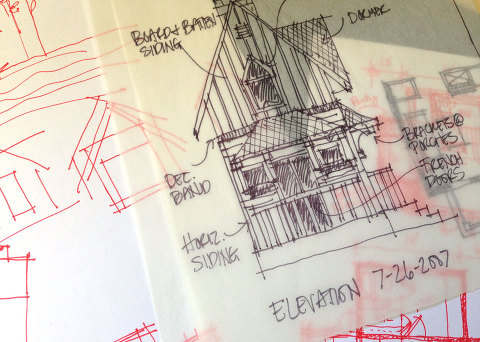 DORMER
BOARD & BATTEN
SIDING
BRACKETS @
PORCHES
FRENCH
DOORS
DEC.
BAND
HORIZ.
SIDING
ELEVATION 7-26-2007